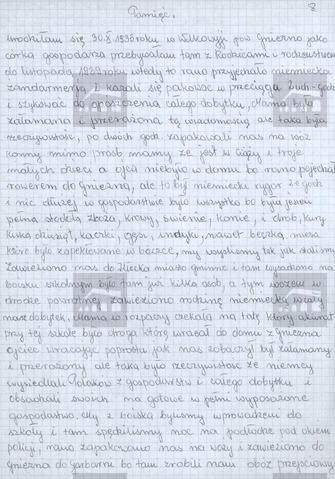 8
Pamięć.
Urodziłam się 30.X 1936 roku w Wilkowyji pow Gniezno jako
córka gospodarza przebywałam tam z Rodzicami i rodzeństwem
do listopada 1939 roku wtedy to rano przyjechało niemiecka
żandarmeria i kazali się pakować w przeciągu 2uch-godz
i szykować do opuszczenia całego dobytku, Mama była
załamana i przerażona tą wiadomością ale taka była
rzeczywistość, po dwóch godz. zapakowali nas na wóz
konny mimo próśb mamy że jest w ciąży i troje
małych dzieci a ojca niebyło w domu bo rano pojechał
rowerem do Gniezna, ale to był niemiecki rygor 2e godz
i nic dłużej w gospodarstwie było wszystko bo była jesień
pełna stodoła zboża, krowy, świenie, konie, i drób, kury
kilka dziesiąt, kaczki, gęsi, indyki, nawet beczka miesa
które było zapeklowane w beczce, my wyszliśmy tak jak staliśmy
zawieziono nas do Kłecka miasto gminne i tam wysadzono na
boisku szkolnym było tam już kilka osób, a tym wozem w
drodze powrotnej zawieziono rodzinę niemiecką w cały
nasz dobytek, Mama w rozpaczy czekała na tatę który akurat
przy tej szkole była droga którą wracał do domu z Gniezna
Ojciec wracając poprostu jak nas zobaczył był załamany
i przerażony ale taka była rzeczywistość że niemcy
wysiedlali Polaków z gospodarstw i całego dobytku i
obsadzali swoich na gotowe w pełni wyposażone
gospodarstwo, My z boiska byliśmy wprowadzeni do
szkoły i tam spędziliśmy noc na podłodze pod okiem
policji, rano zapakowano nas na wozy i zawieziono do
Gniezna do garbarni bo tam zrobili nam obóz przejściowy